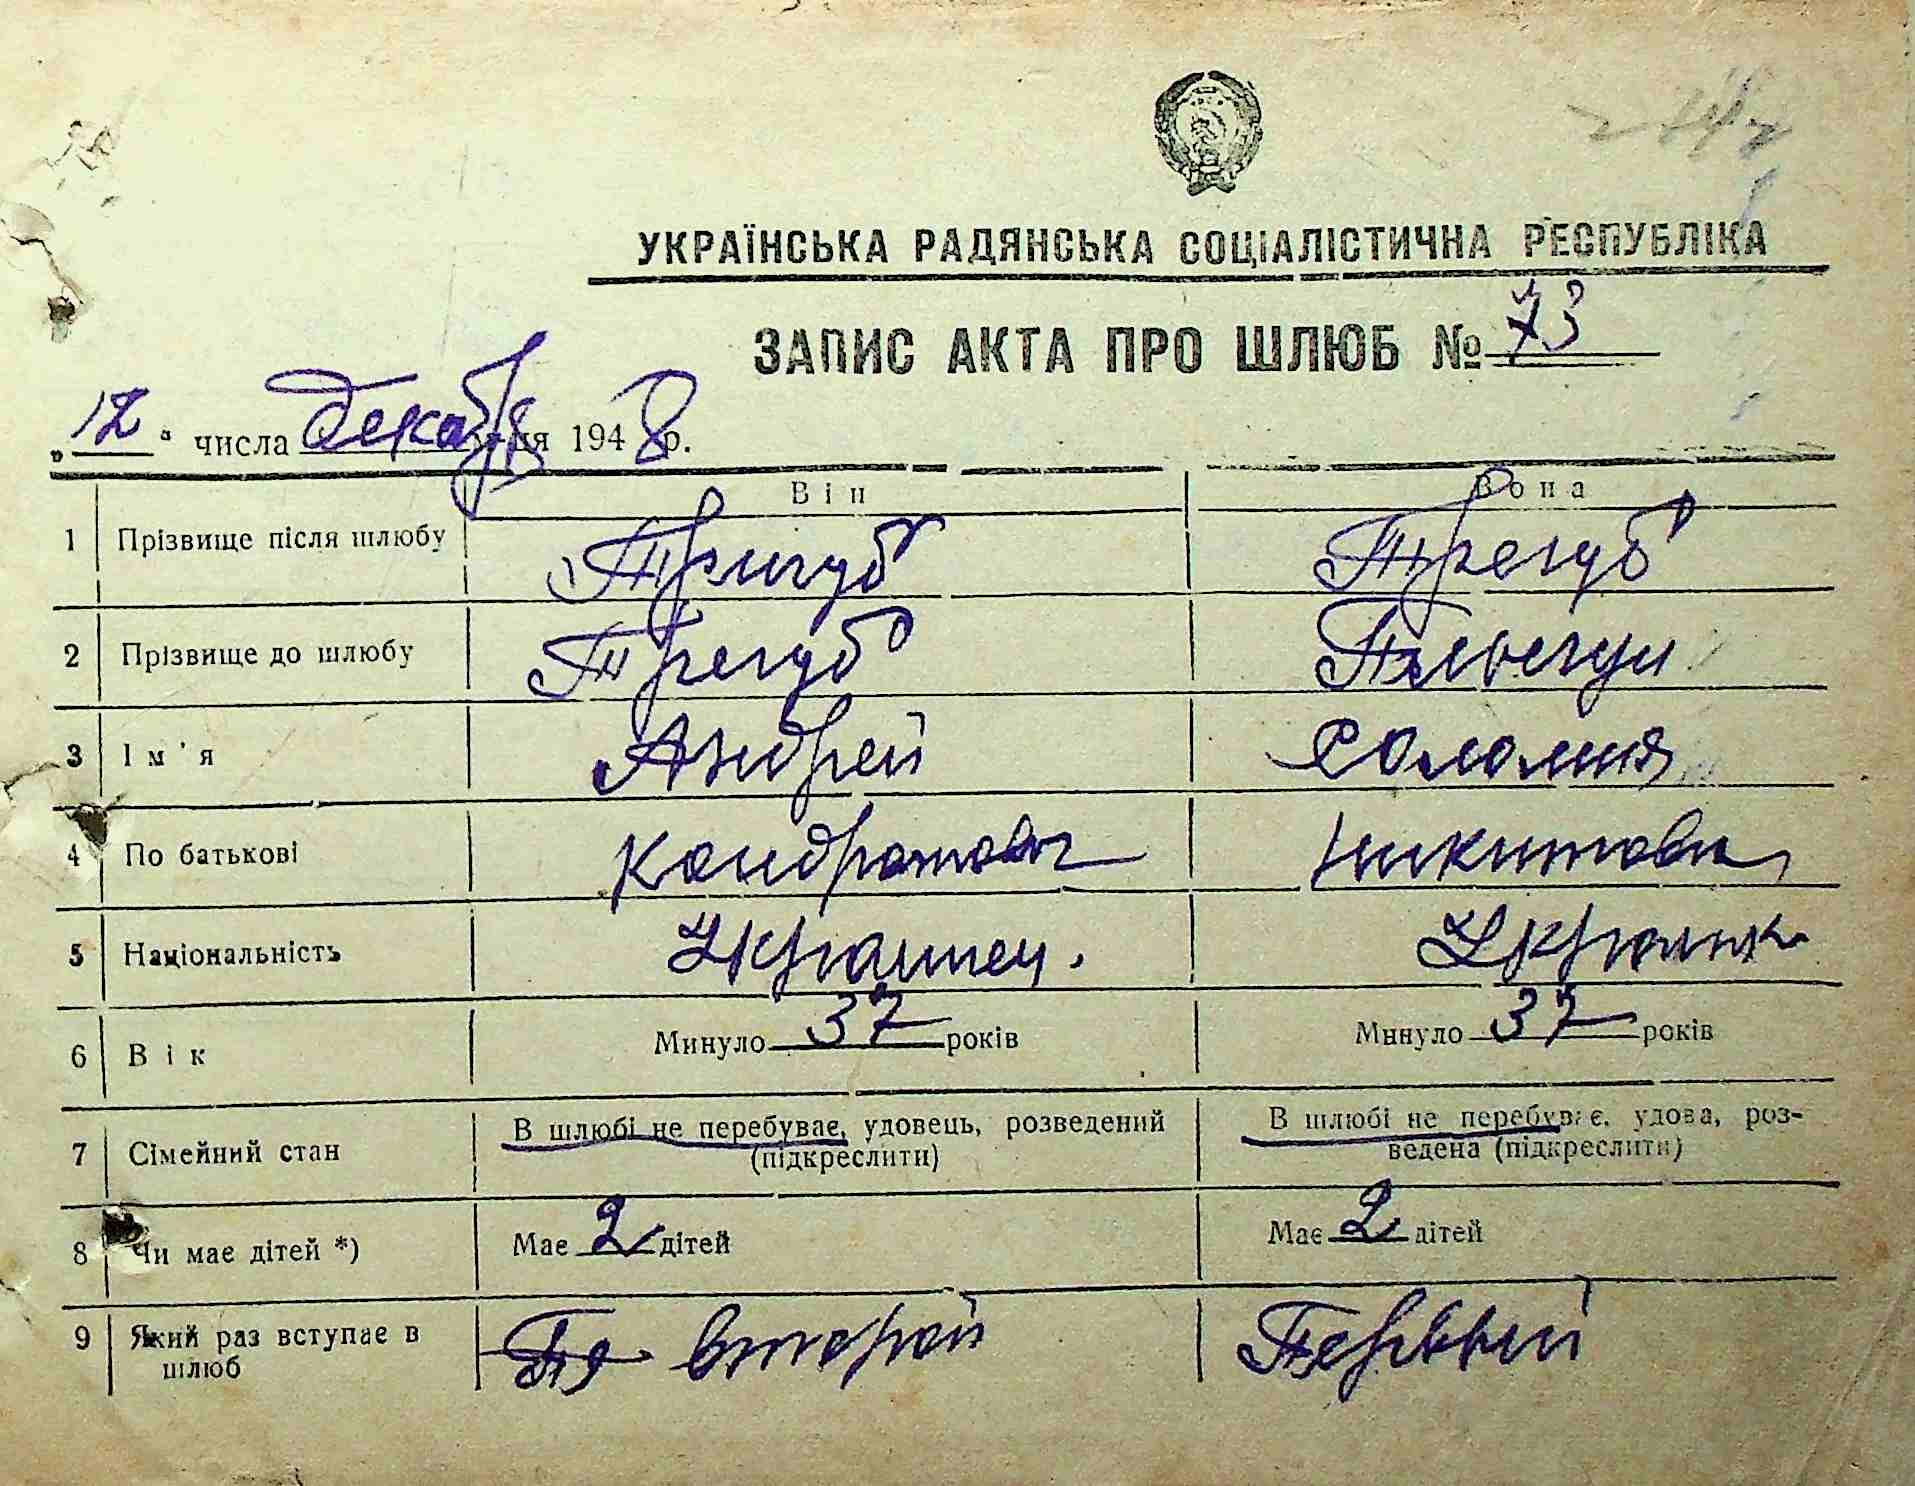 УКРАЇНСЬКА РАДЯНСЬКА СОЦІАЛІСТИЧНА РЕСПУБЛІКА
ЗАПИС АКТА ПРО ШЛЮБ № 73
„12“ числа декабря 1948 р.
Він Вона
1 Прізвище після шлюбу Тригуб Трегуб
2 Прізвище до шлюбу Трегуб
3 Ім'я Андрей Соломия
4 По батькові Кондратович Никитовна
5 Національність Украинец. Украинк
6 Вік Минуло 37 років Минуло 37 років
7 Сімейний стан В шлюбі не перебуває, удовець, розведений (підкреслити) В шлюбі не перебуває, удова, роз-
ведена (підкреслити)
8 Чи має дітей *) Має 2 дітей Має 2 дітей
9 Який раз вступає в шлюб второй Первый